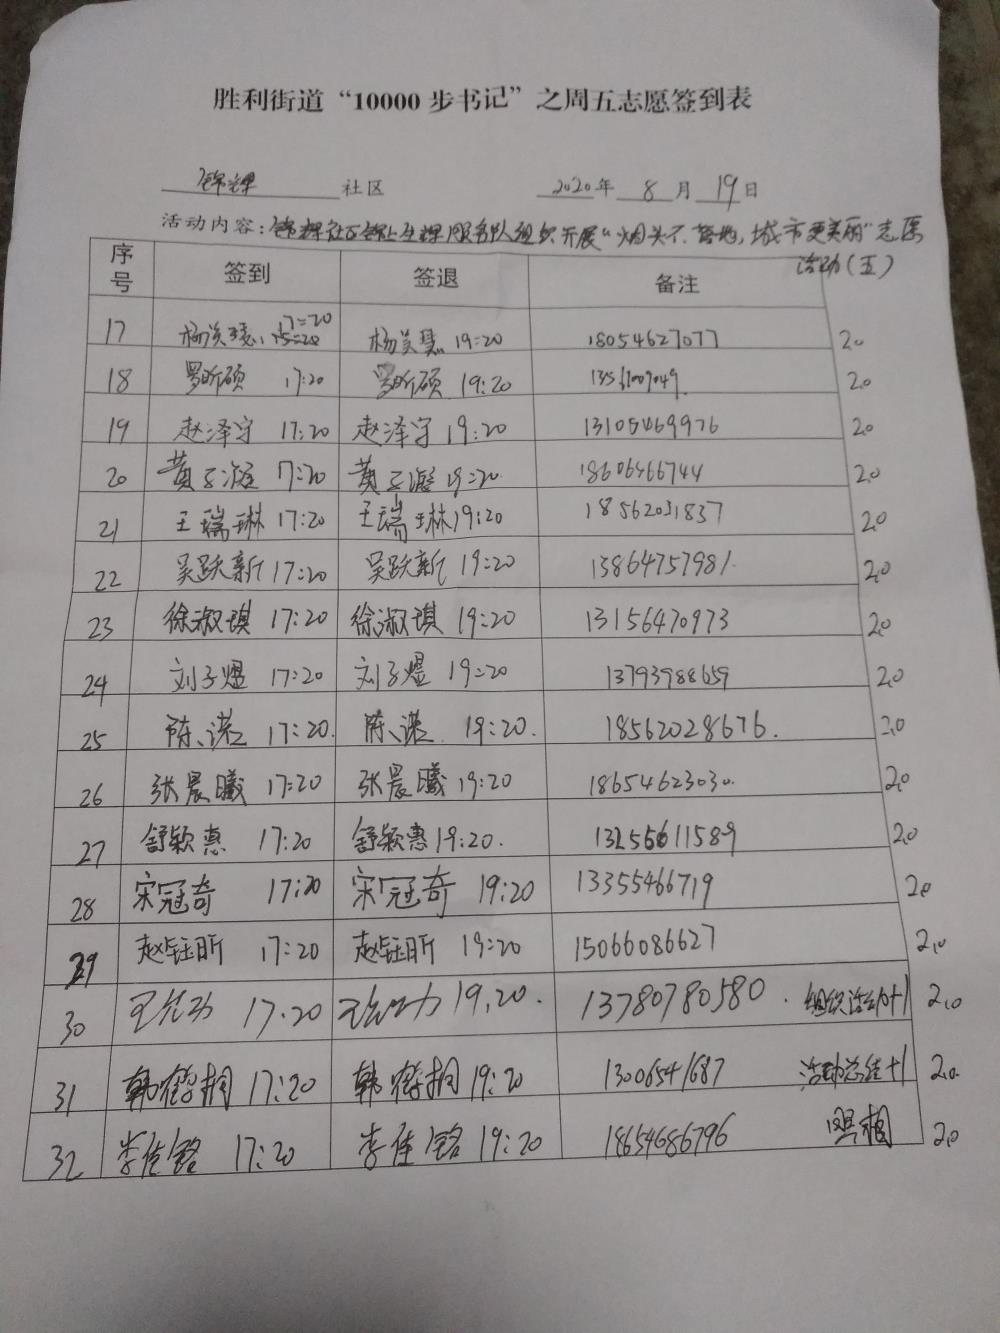 胜利街道“10000步书记”之周五志愿签到表
锦辉 社区 2020年 8 月 19 日
活动内容：锦辉社区锦上生辉服务队组织开展“烟头不落地，城市更美丽”志愿
活动（五）
序号 签到 签退 备注
17 17:20 19:20 18054627077 2.0
18 罗昕硕 17:20 罗昕硕 19:20 2.0
19 赵泽宇 17:20 赵泽宇 19:20 13105469976 2.0
20 17:20 19:20 18606466744 2.0
21 王瑞琳 17:20 王瑞琳 19:20 18562031837 2.0
22 吴跃新 17:20 吴跃新 19:20 13864757981. 2.0
23 徐淑琪 17:20 徐淑琪 19:20 13156470973 2.0
24 刘子煜 17:20 刘子煜 19:20 13793988659 2.0
25 陈诺 17:20. 陈诺 19:20. 18562028676. 2.0
26 张晨曦 17:20 张晨曦 19:20 18654623030. 2.0
27 舒颖惠 17:20 舒颖惠 19:20. 13255611589 2.0
28 宋冠奇 17:20 宋冠奇 19:20 13355466719 2.0
29 赵钰昕 17:20 赵钰昕 19:20 15066086627 2.0
30 17.20 19.20. 13780780580. 组织活动+1 2.0
31 韩鹤桐 17:20 韩鹤桐 19:20 13006541687 活动总结+1 2.0.
32 李佳铭 17:20 李佳铭 19:20 18654686796 照相 2.0